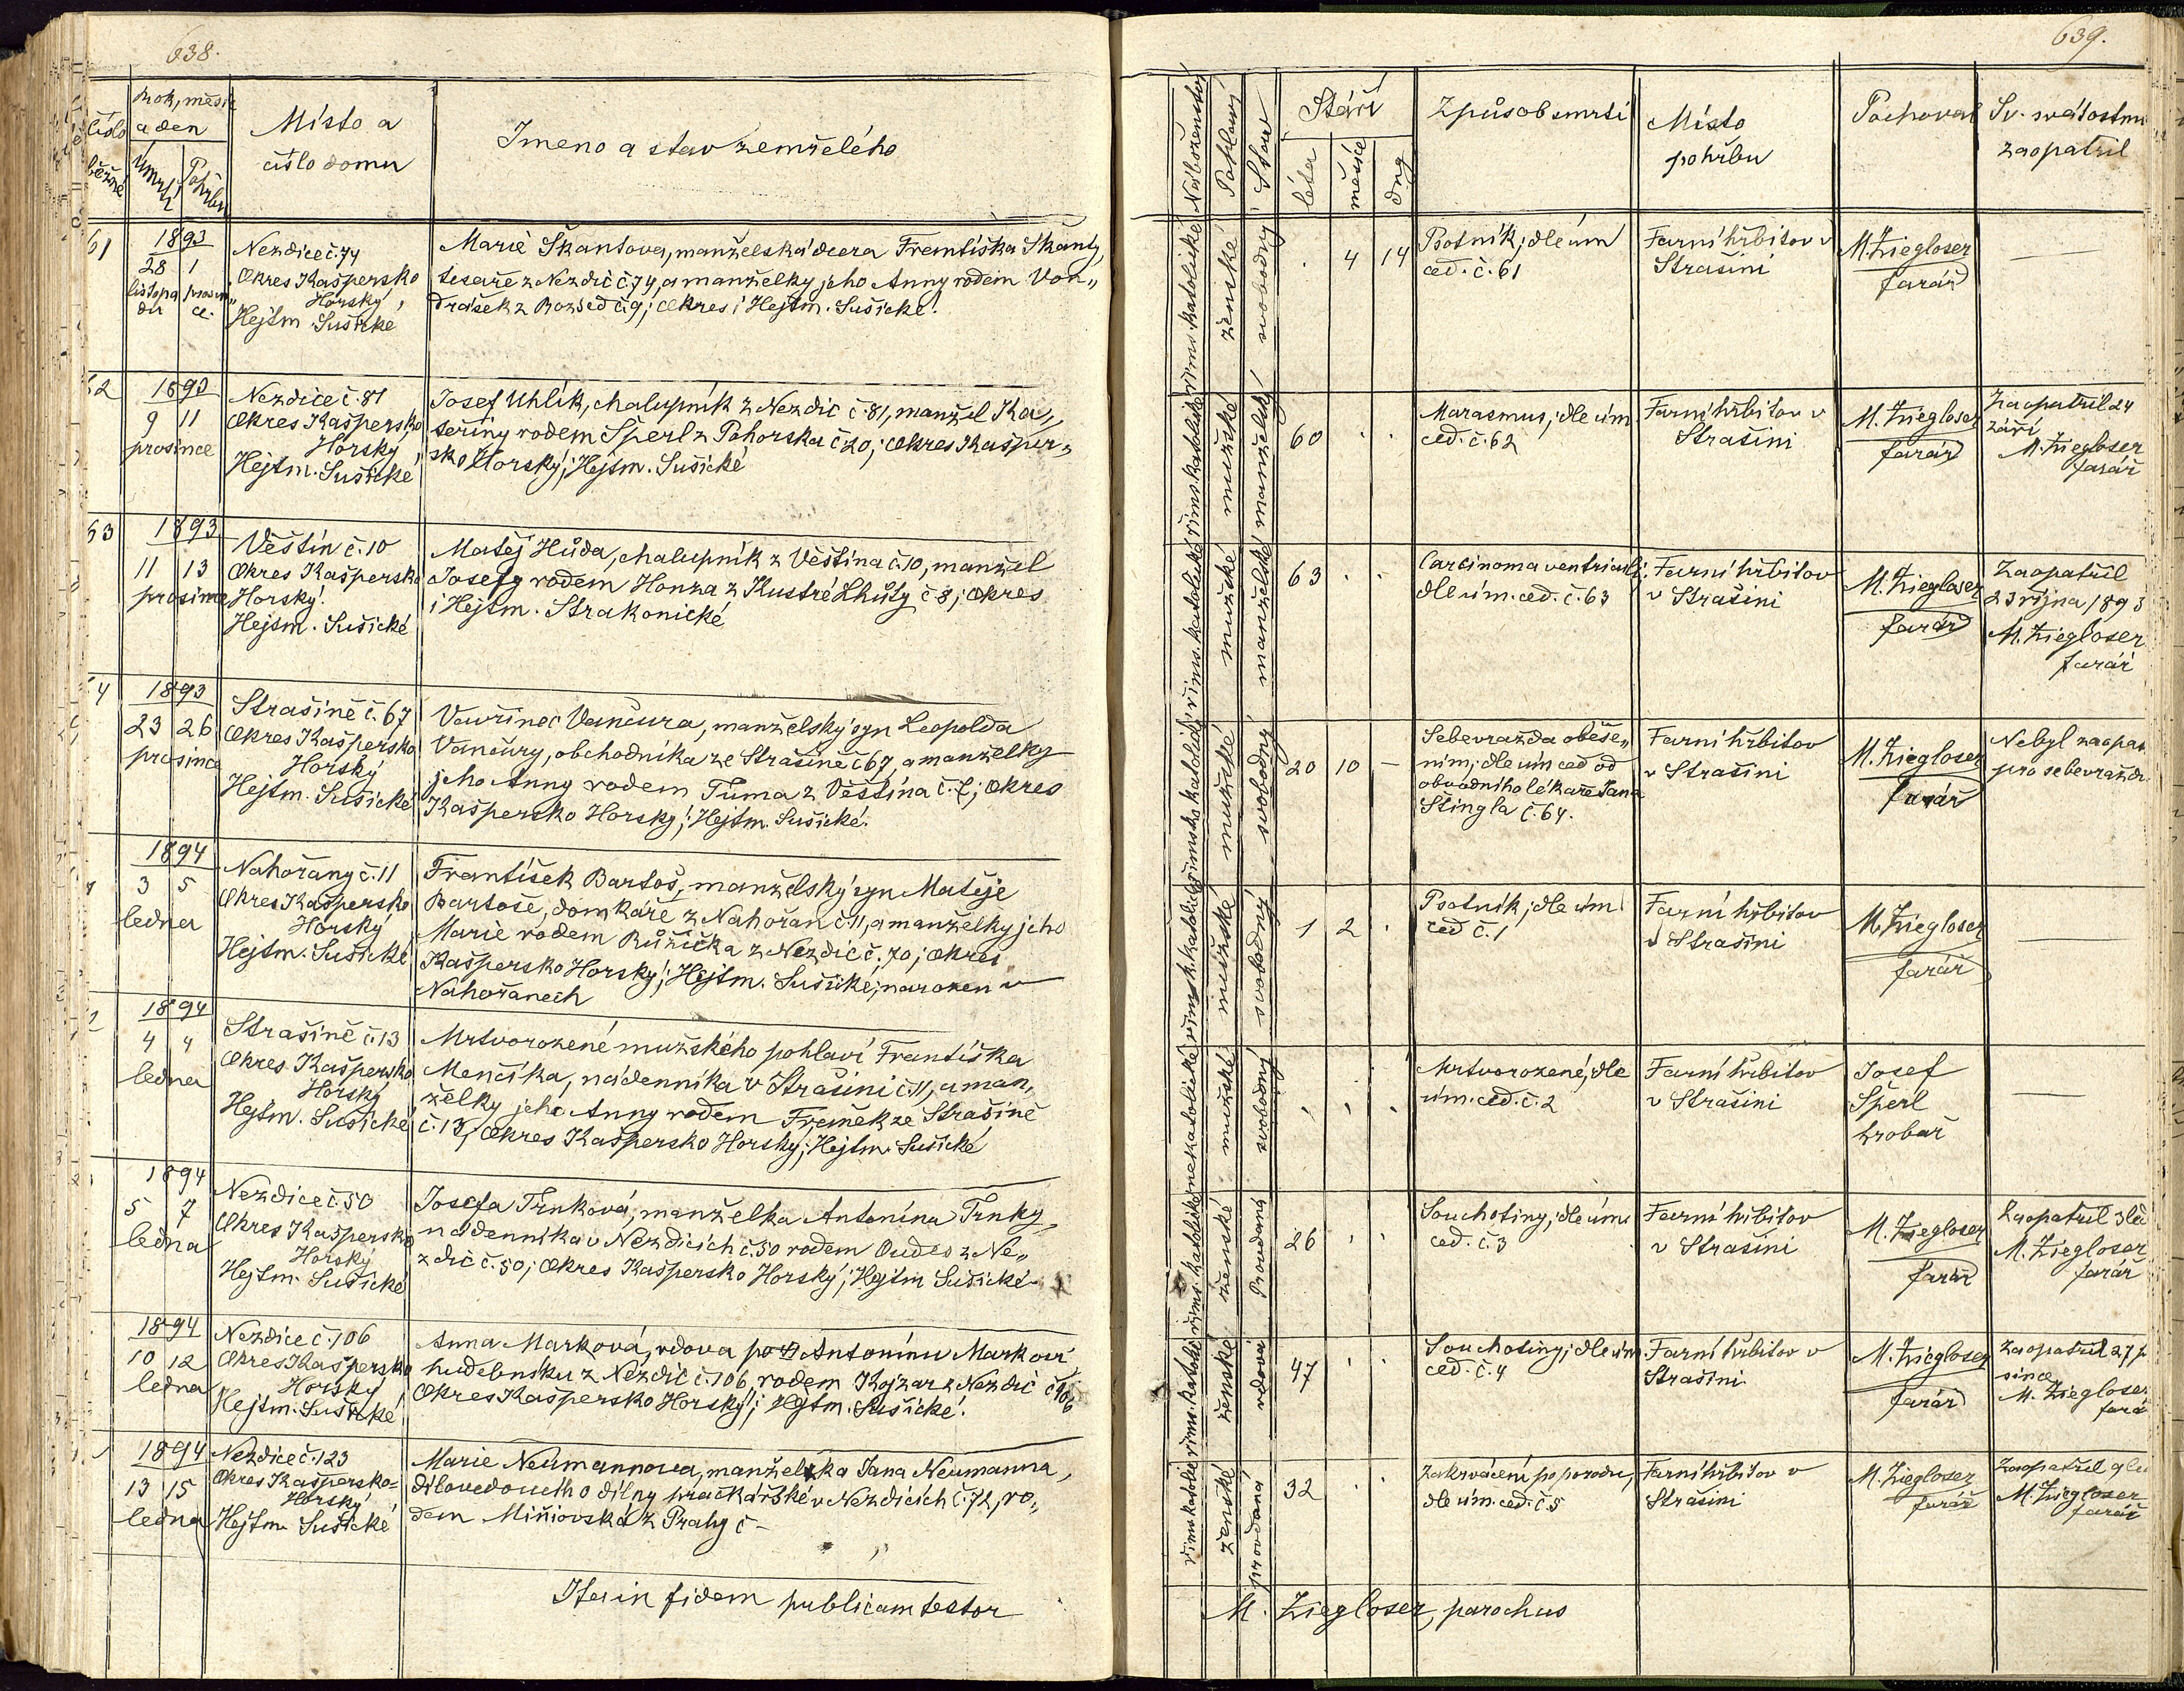 638.
číslo běžné
Rok, měsíc
a den
Úmrtí
Pohřbu
Místo a
číslo domu
Jmeno a stav zemřelého
61
1893
28 1
listopa prosin„
du ce.
Nezdice č. 74
Okres Kašpersko
Horský,
Hejtm. Sušické
Marie Škantova, manželská dcera Františka Škanty,
tesaře z Nezdic č. 74, a manželky jeho Anny rodem Von„
drášek z Rozsed č. 9; Okres i Hejtm. Sušické.
62
1893
9 11
prosince
Nezdice č. 81
Okres Kaspersko
Horský,
Hejtm. Sušické
Josef Uhlík, chalupník z Nezdic č. 81, manžel Ka„
teřiny rodem Šperl z Pohorska č 20; Okres Kašper„
sko Horský; Hejtm. Sušické
63
1893
11 13
prosince
Věštín č. 10
Okres Kašpersko
Horský.
Hejtm. Sušické
Matěj Hůda, chalupník z Věštína č. 10, manžel
Josefy rodem Honza z Kustré Lhůty č 8; Okres
i Hejtm. Strakonické
64
1893
23 26
prosince
Strašině č. 67
Okres Kašpersko
Horský
Hejtm. Sušické
Vavřinec Vančura, manželský syn Leopolda
Vančury, obchodníka ze Strašině č 67, a manželky
jeho Anny rodem Tůma z Věštína č. 7; Okres
Kašpersko Horský; Hejtm. Sušické.
1894
3 5
ledna
Nahořany č. 11
Okres Kašpersko
Horský
Hejtm. Sušické
František Bartoš, manželský syn Matěje
Bartoše, domkáře z Nahořan č 11, a manželky jeho
Marie rodem Růžička z Nezdic č. 70; Okres
Kašpersko Horský; Hejtm. Sušické; narozen v
Nahořanech
2
1894
4 4
ledna
Strašině č. 13
Okres Kašpersko
Horský
Hejtm. Sušické
Mrtvorozené mužského pohlaví Františka
Menčíka, nádenníka v Strašini č. 11, a man„
želky jeho Anny rodem Franěk ze Strašině
č. 13, Okres Kašpersko Horský; Hejtm. Sušické
1894
5 7
ledna
Nezdice č 50
Okres Kašpersko
Horský
Hejtm. Sušické
Josefa Trnková, manželka Antonína Trnky,
nádenníka v Nezdicích č. 50 rodem Oudes z Ne„
zdic č. 50; Okres Kašpersko Horský; Hejtm Sušické
1894
10 12
ledna
Nezdice č. 106
Okres Kašpersko
Horský
Hejtm. Sušické
Anna Marková, vdova po Antonínu Markovi,
hudebníku z Nezdic č. 106, rodem Kojzar z Nezdic č 106
Okres Kašpersko Horský; Hejtm. Sušické.
1894
13 15
ledna
Nezdice č. 123
Okres Kaspersko-
Horský
Hejtm. Sušické
Marie Neumannova, manželka Jana Neumanna,
dílovedoucího dílny pračkářské v Nezdicích č. 72, ro„
dem Miňiovská z Prahy č -
Ita in fidem publicam testor
639.
Náboženství
Pohlaví
Stav
Stáří
léta
měsíce
dny
Způsob smrti
Místo
pohřbu
Pochoval
Sv. svátostmi
zaopatřil
ženské
svobodný
. 4 14
Psotník; dle úm
ced. č. 61
Farní hřbitov v
Strašini
M. Ziegloser
farář
mužské
manželský
60 . .
Marasmus; dle úm
ced. č. 62
Farní hřbitov v
Strašini
M. Ziegloser
farář
Zaopatřil 24
září
M. Ziegloser
farář
mužské
manželské
63 . .
Carcinoma ventriculi;
dle úm. ced. č. 63
Farní hřbitov
v Strašini
M. Ziegloser
farář
Zaopatřil
23 října 1893
M. Ziegloser
farář
mužské
svobodný
20 10 –
Sebevražda oběše„
ním; dle úm ced od
obvodního lékaře Jana
Štingla č. 64.
Farní hřbitov
v Strašini
M. Ziegloser
farář
Nebyl zaopat
pro sebevraždu
mužské
svobodný
1 2 .
Psotník; dle úm
ced č. 1
Farní hřbitov
v Strašini
M. Ziegloser
farář
mužské
svobodný
Mrtvorozené; dle
úm. ced. č. 2
Farní hřbitov
v Strašini
Josef
Šperl
hrobař
ženské
Provdaná
26 . .
Souchotiny; dle úm
ced. č. 3
Farní hřbitov
v Strašini
M. Ziegloser
farář
Zaopatřil 3 led
M. Ziegloser
farář
ženské
vdova
47 . .
Souchotiny; dle úm
ced. č. 4
Farní hřbitov v
Strašini
M. Ziegloser
farář
Zaopatřil 27 p
since
M. Ziegloser
farář
ženské
provdaná
32 .
Zakrvácení po porodu,
dle úm. ced. č. 5
Farní hřbitov v
Strašini
M. Ziegloser
farář
Zaopatřil 9 le
M. Ziegloser
farář
M. Ziegloser, parochus